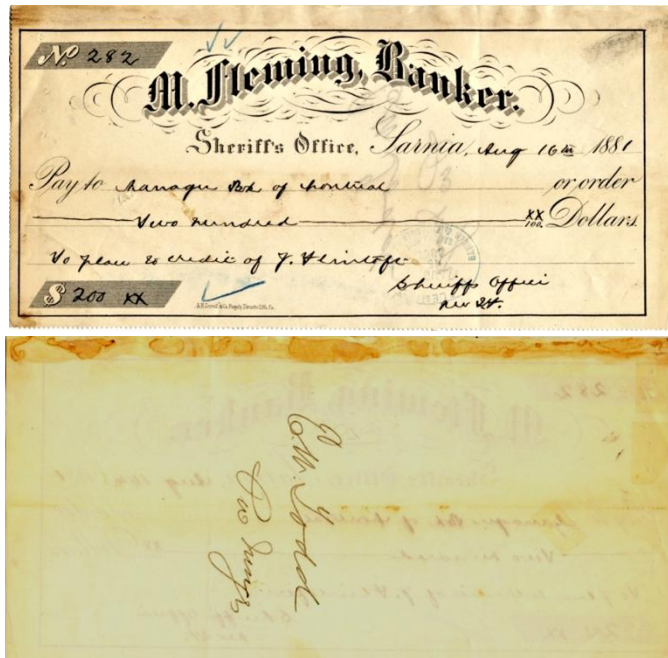 No 282
M. Fleming, Banker.
Sheriff's Office, Sarnia, Aug 16th 1881
Pay to Manager Bk of Montreal or order
Two Hundred XX/100 Dollars
To place to credit of J. Flintoft
$ 200 XX
Sheriffs Office
per
E.W. Todd